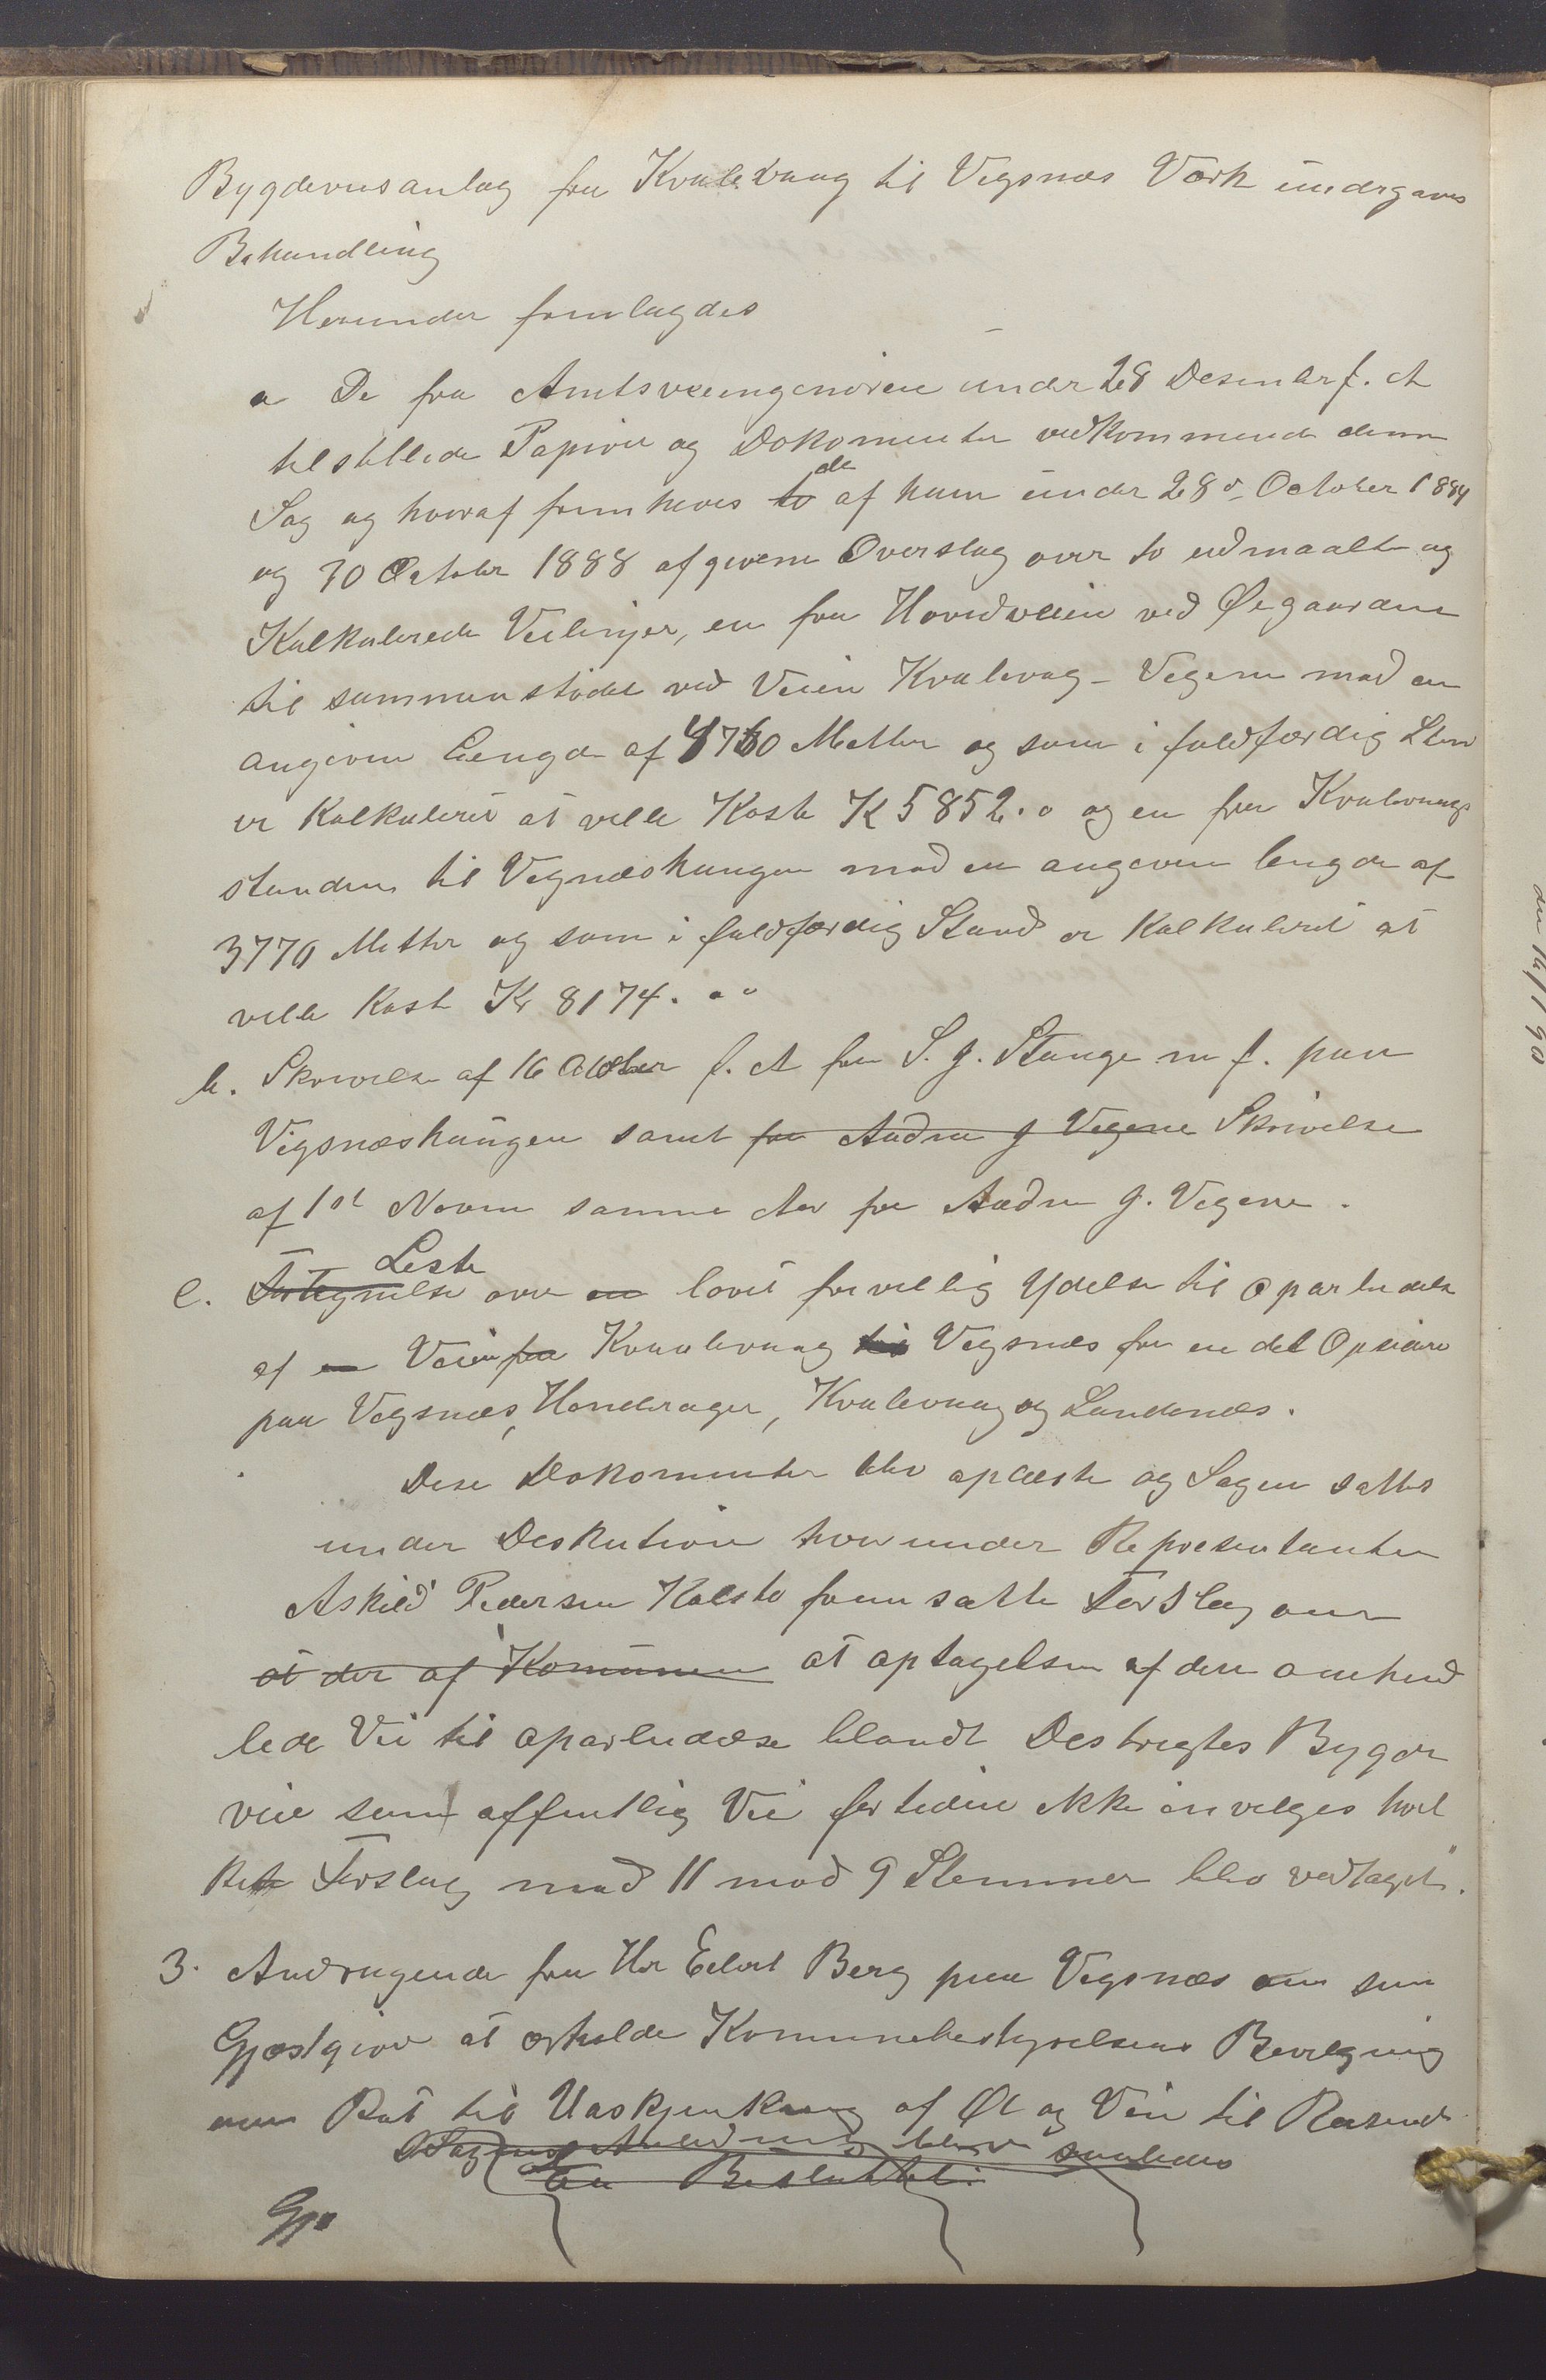 Bygdeveisanlæg fra Kvalevaag til Vigsnæs Værk undergaves
Behandling
Herunder fremlagdes
a De fra Amtsveiingeniøren under 28 Desember f. A
tilstillede Papirer og Dokomenter vedkommende denne
Sag og hvoraf fremheves to de af ham under 28de October 1884
og 30 October 1888 afgivene Overslag over to udmaalte og
Kalkulerede Veilinjer, en fra Hovedveien ved Øegaardene
til sammenstødet ved Veien Kvalevag - Vegene med en
angiven Længde af 4760 Metter og som i fuldfærdig Stan
er Kalkuleret at ville Koste K 5852.0 og en fra Kvalevaag
standen til Vignæshaugen med en angiven længde af
3770 Metter og som i fuldfærdig Stand er Kalkuleret at
ville Koste Kr 8174.00
b. Skrivelse af 16 Oktober f. A fra S. J. Stange m f. paa
Vigsnæshaugen samt fra Andrea J Vegene Skrivelse
af 1st Novem samme Aar fra Andrea J. Vegene.
Liste
c. Fortegnelse over en lovet frivellig Ydelse til oparbeidelse
af en Veien fra Kvalevaag til Vigsnæs fra en del Opsidere
paa Vigsnæs, Hinderager, Kvalevaag og Sandenæs.
Disse Dokomenter blev oplæste og Sagen sattes
under Deskution hvorunder Representanten
Askild Pedersen Kolstø fremsatte Forslag om
at der af Komunen at optagelsen af den omhand
lede Vei til oparbeidelse blandt Destrigtes Bygde
veie som offentlig Vei for tiden ikke invelges hvil
ket Forslag med 11 mod 9 Stemmer blev vedtaget".
3. Andragende fra Hr Edert Berg paa Vigsnæs om som
Gjæstgiver at erholde Komunebestyrelsens Bevilgning
om Ret til Udskjenkning af Øl og Vin til Reisende
Sagens Anledning blev saaledes
Besluttet:
Gja
den 16/1 90